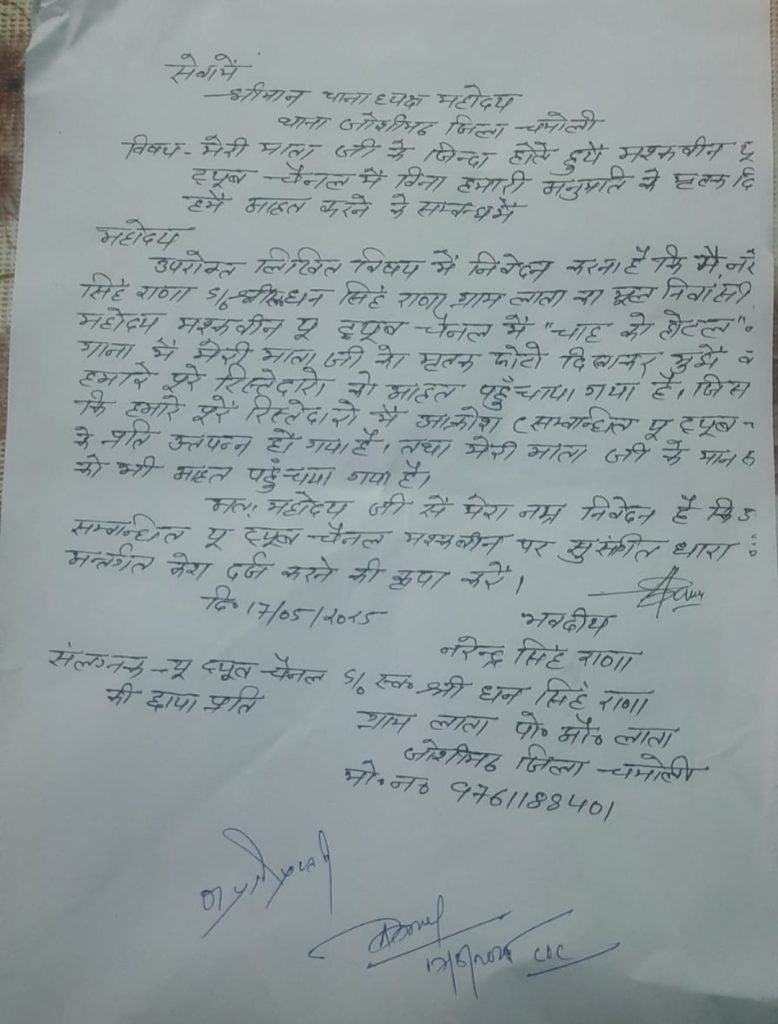 सेवामें
श्रीमान थानाध्यक्ष महोदय
थाना जोशीमठ जिला चमोली
विषय - मेरी माता जी के जिन्दा होते हुये मशकबीन यू
ट्यूब चैनल में बिना हमारी अनुमति के मृतक दि
हमें आहत करने के सम्बन्ध में
महोदय
उपरोक्त लिखित विषय में निवेदन करना है कि मैं नरे
सिंह राणा S/o श्री धन सिंह राणा ग्राम लाता का मूल निवासी
महोदय मशकबीन यू ट्यूब चैनल में "चाह को होटल"
गाना में मेरी माता जी का मृतक फोटो दिखाकर मुझे व
हमारे पूरे रिस्तेदारो को आहत पहुँचाया गया है। जिस
कि हमारे पूरे रिस्तेदारो में आक्रोश सम्बान्धित यू ट्यूब
के प्रति उत्पन्न हो गया है। तथा मेरी माता जी के मान
को भी आहत पहुँचाया गया है।
अतः महोदय जी से मेरा नम्र निवेदन है कि उ
सम्बान्धित यू ट्यूब चैनल मशकबीन पर सुसंगत धारा
अन्तर्गत केश दर्ज करने की कृपा करें।
दि० 17/05/2025
भवदीय
नरेन्द्र सिंह राणा
संलग्नक - यू ट्यूब चैनल
की छाया प्रति
S/o स्व० श्री धन सिंह राणा
ग्राम लाता पो० औ० लाता
जोशीमठ जिला चमोली
मो० न० 9761188401